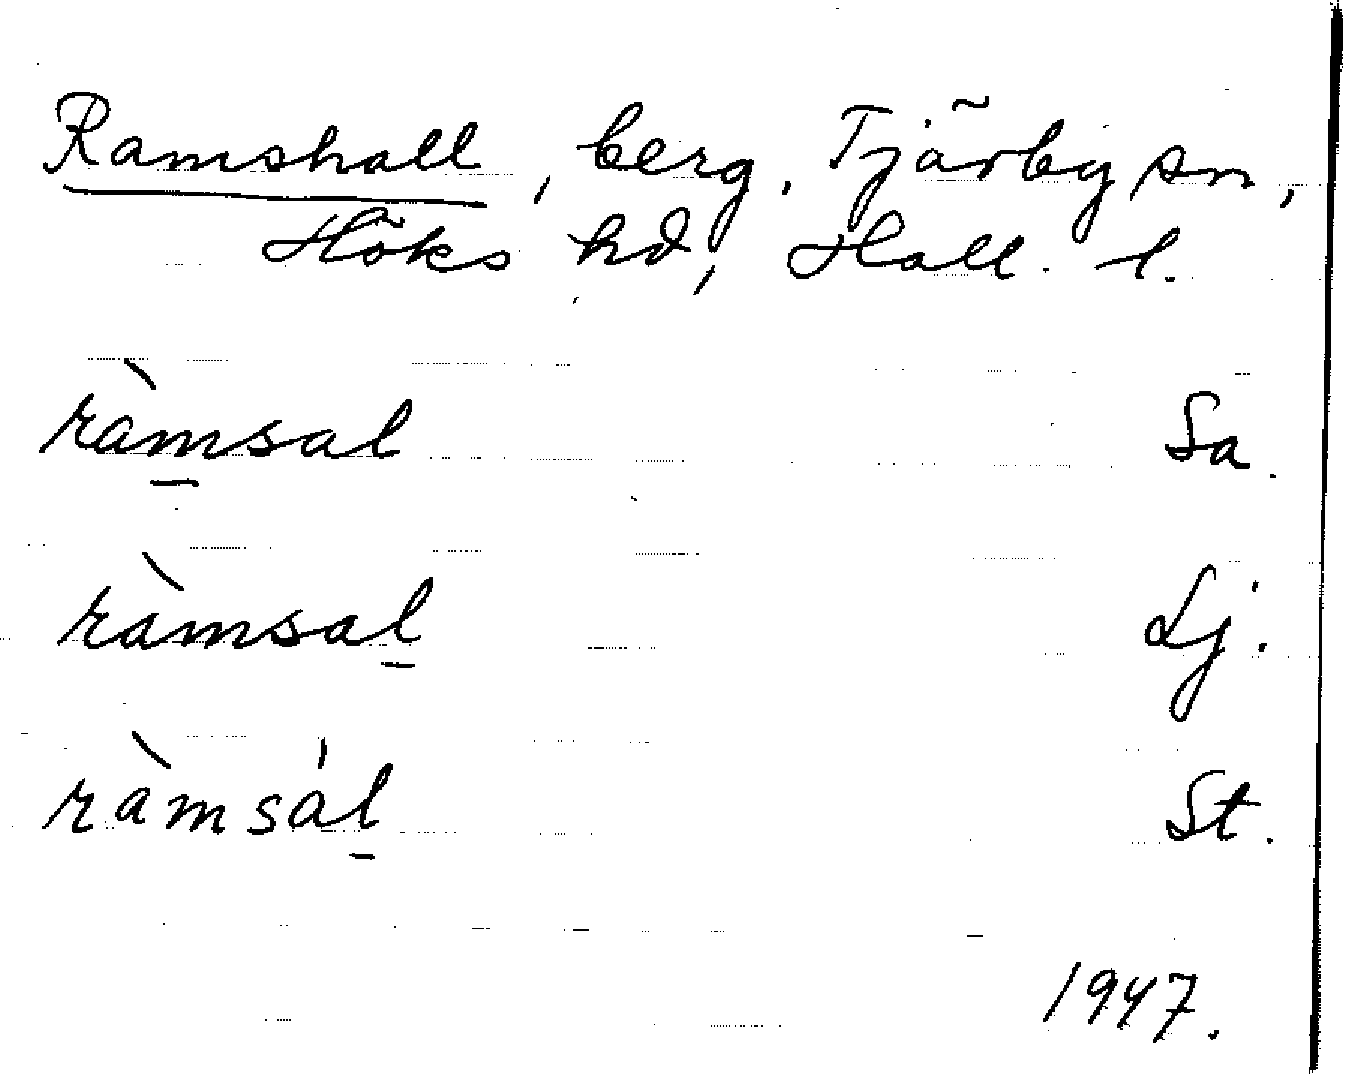 Ramshall, berg. Tjärby sn,
Höks hd, Hall. l.
ràm̲sal Sa.
ràmsal̲ Lj.
ràmsál̲ St.
1947.